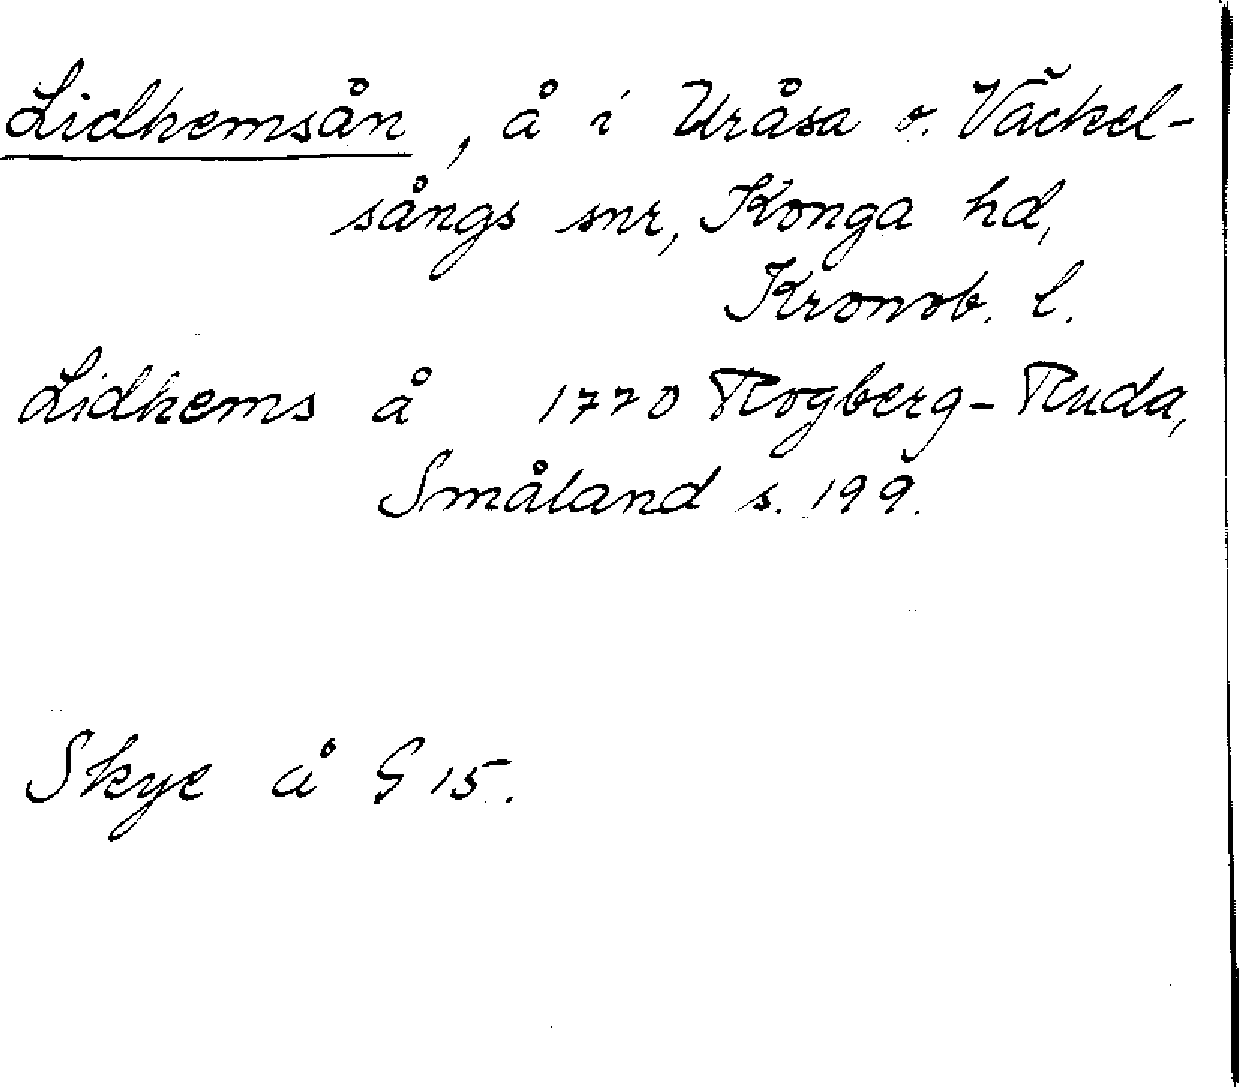 Lidhemsån, å i Uråsa o. Väckel-
sångs snr, Konga hd,
Kronob. l.
Lidhems å 1770 Rogberg-Ruda,
Småland s. 199.
Skye å G 15.